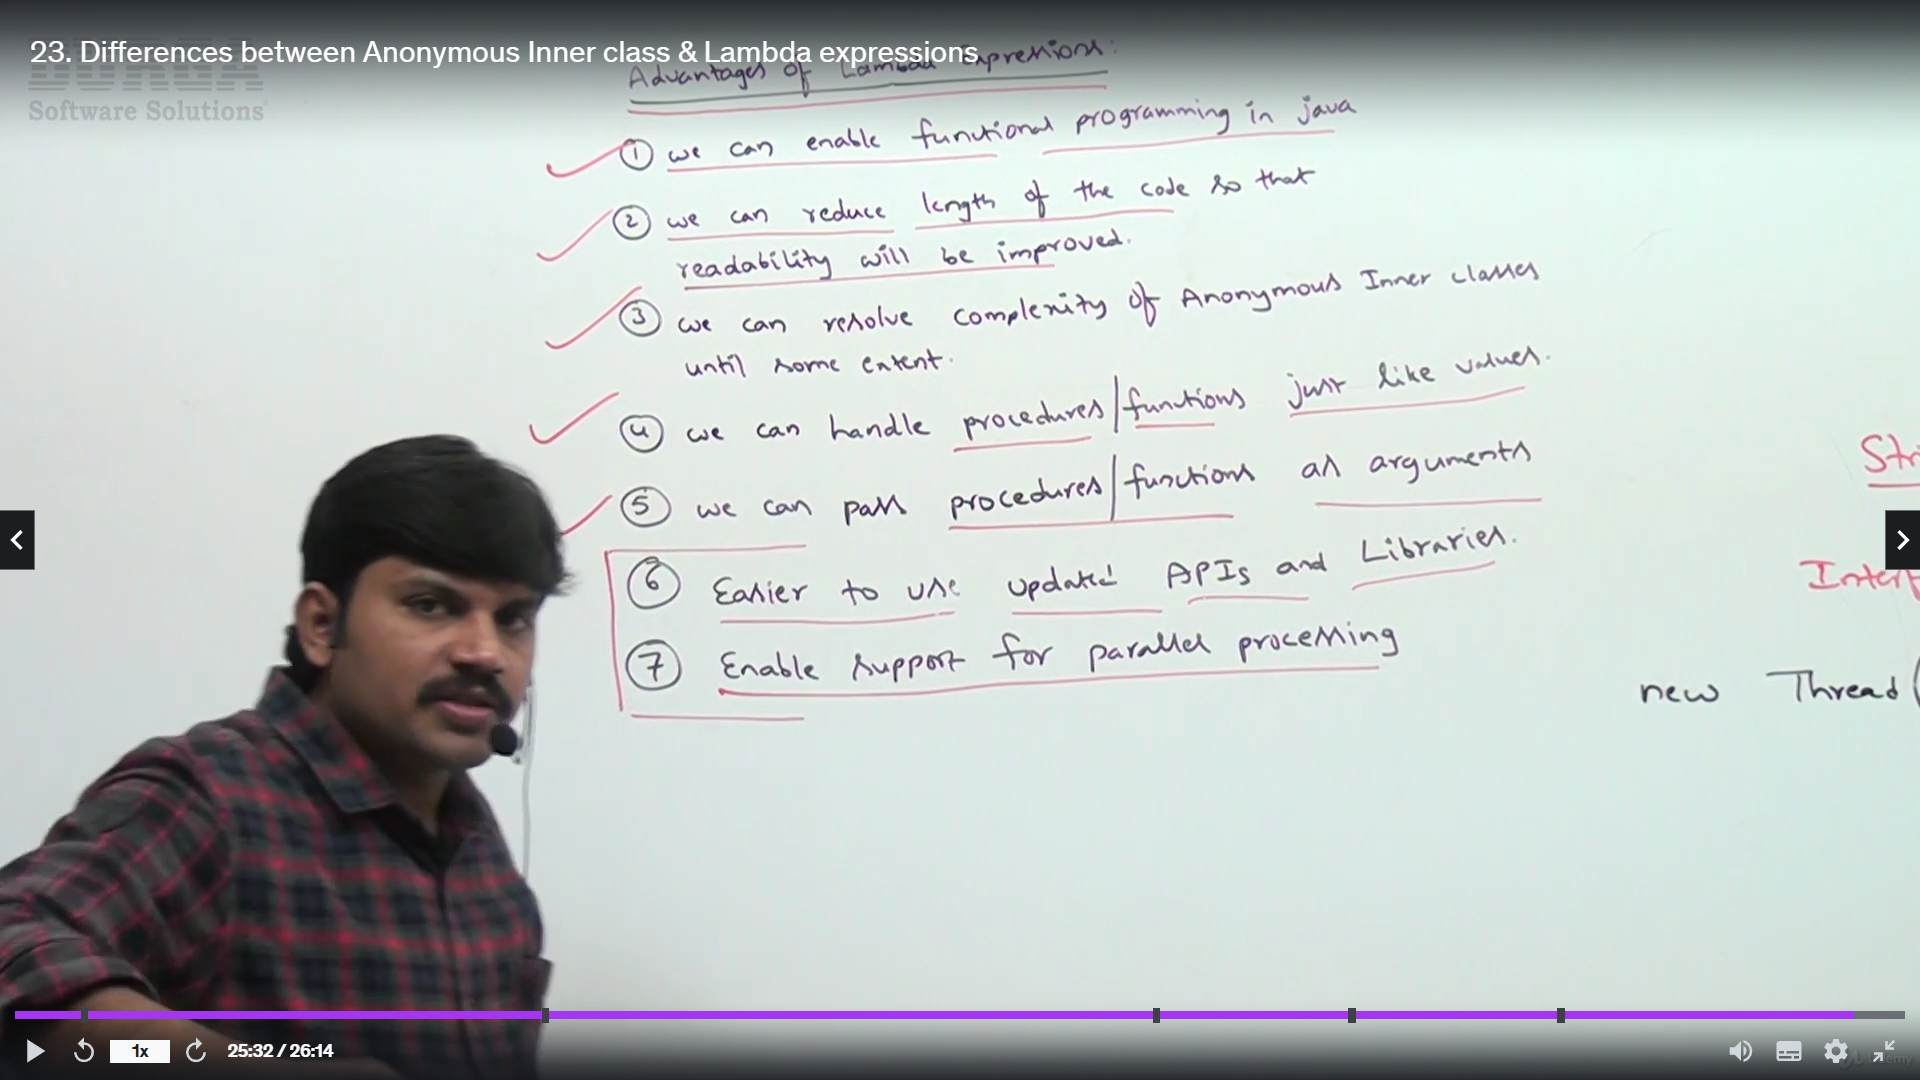 23. Differences between Anonymous Inner class & Lambda expressions
DURGA
Software Solutions
Advantages of Lambda Expressions:
① we can enable functional programming in java
② we can reduce length of the code so that
readability will be improved.
③ we can resolve complexity of Anonymous Inner classes
until some extent.
④ we can handle procedures|functions just like values.
⑤ we can pass procedures|functions as arguments
⑥ Easier to use updated APIs and Libraries.
⑦ Enable support for parallel processing
Stri
Interf
new Thread(
1x
25:32 / 26:14